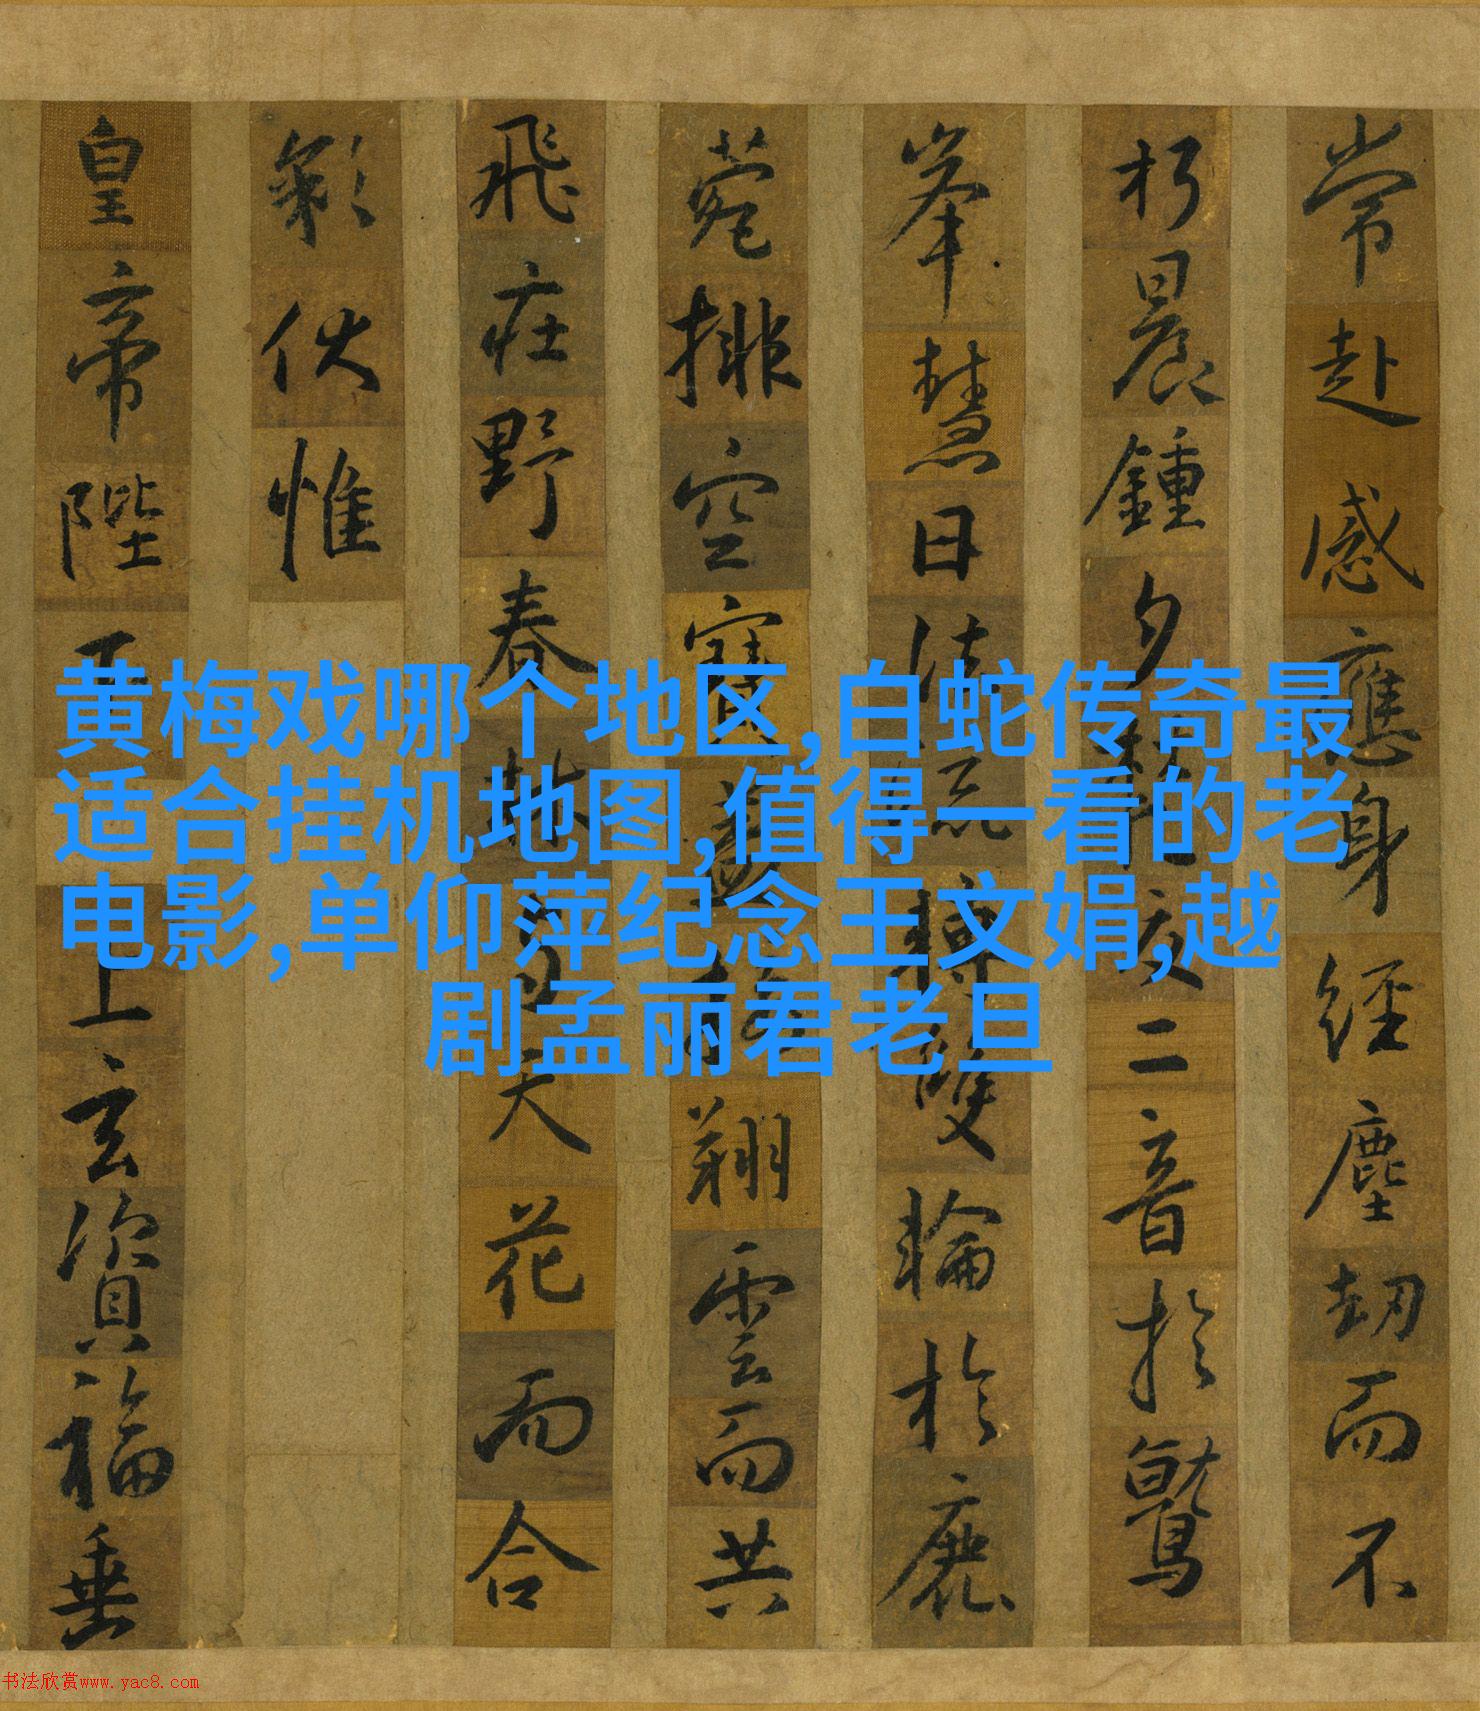 黄梅戏哪个地区,白蛇传奇最
适合挂机地图,值得一看的老
电影,单仰萍纪念王文娟,越
剧孟丽君老旦
常赴感應身經塵劫而不
朽晨鍾夕交二音於鷲
峯慧日法流轉雙輪於鹿
菀排空寶蓋接翔雲而共
飛莊野春林天花而合
彩伏惟
皇帝陛下上玄資福垂
书法欣赏www.yac8.com